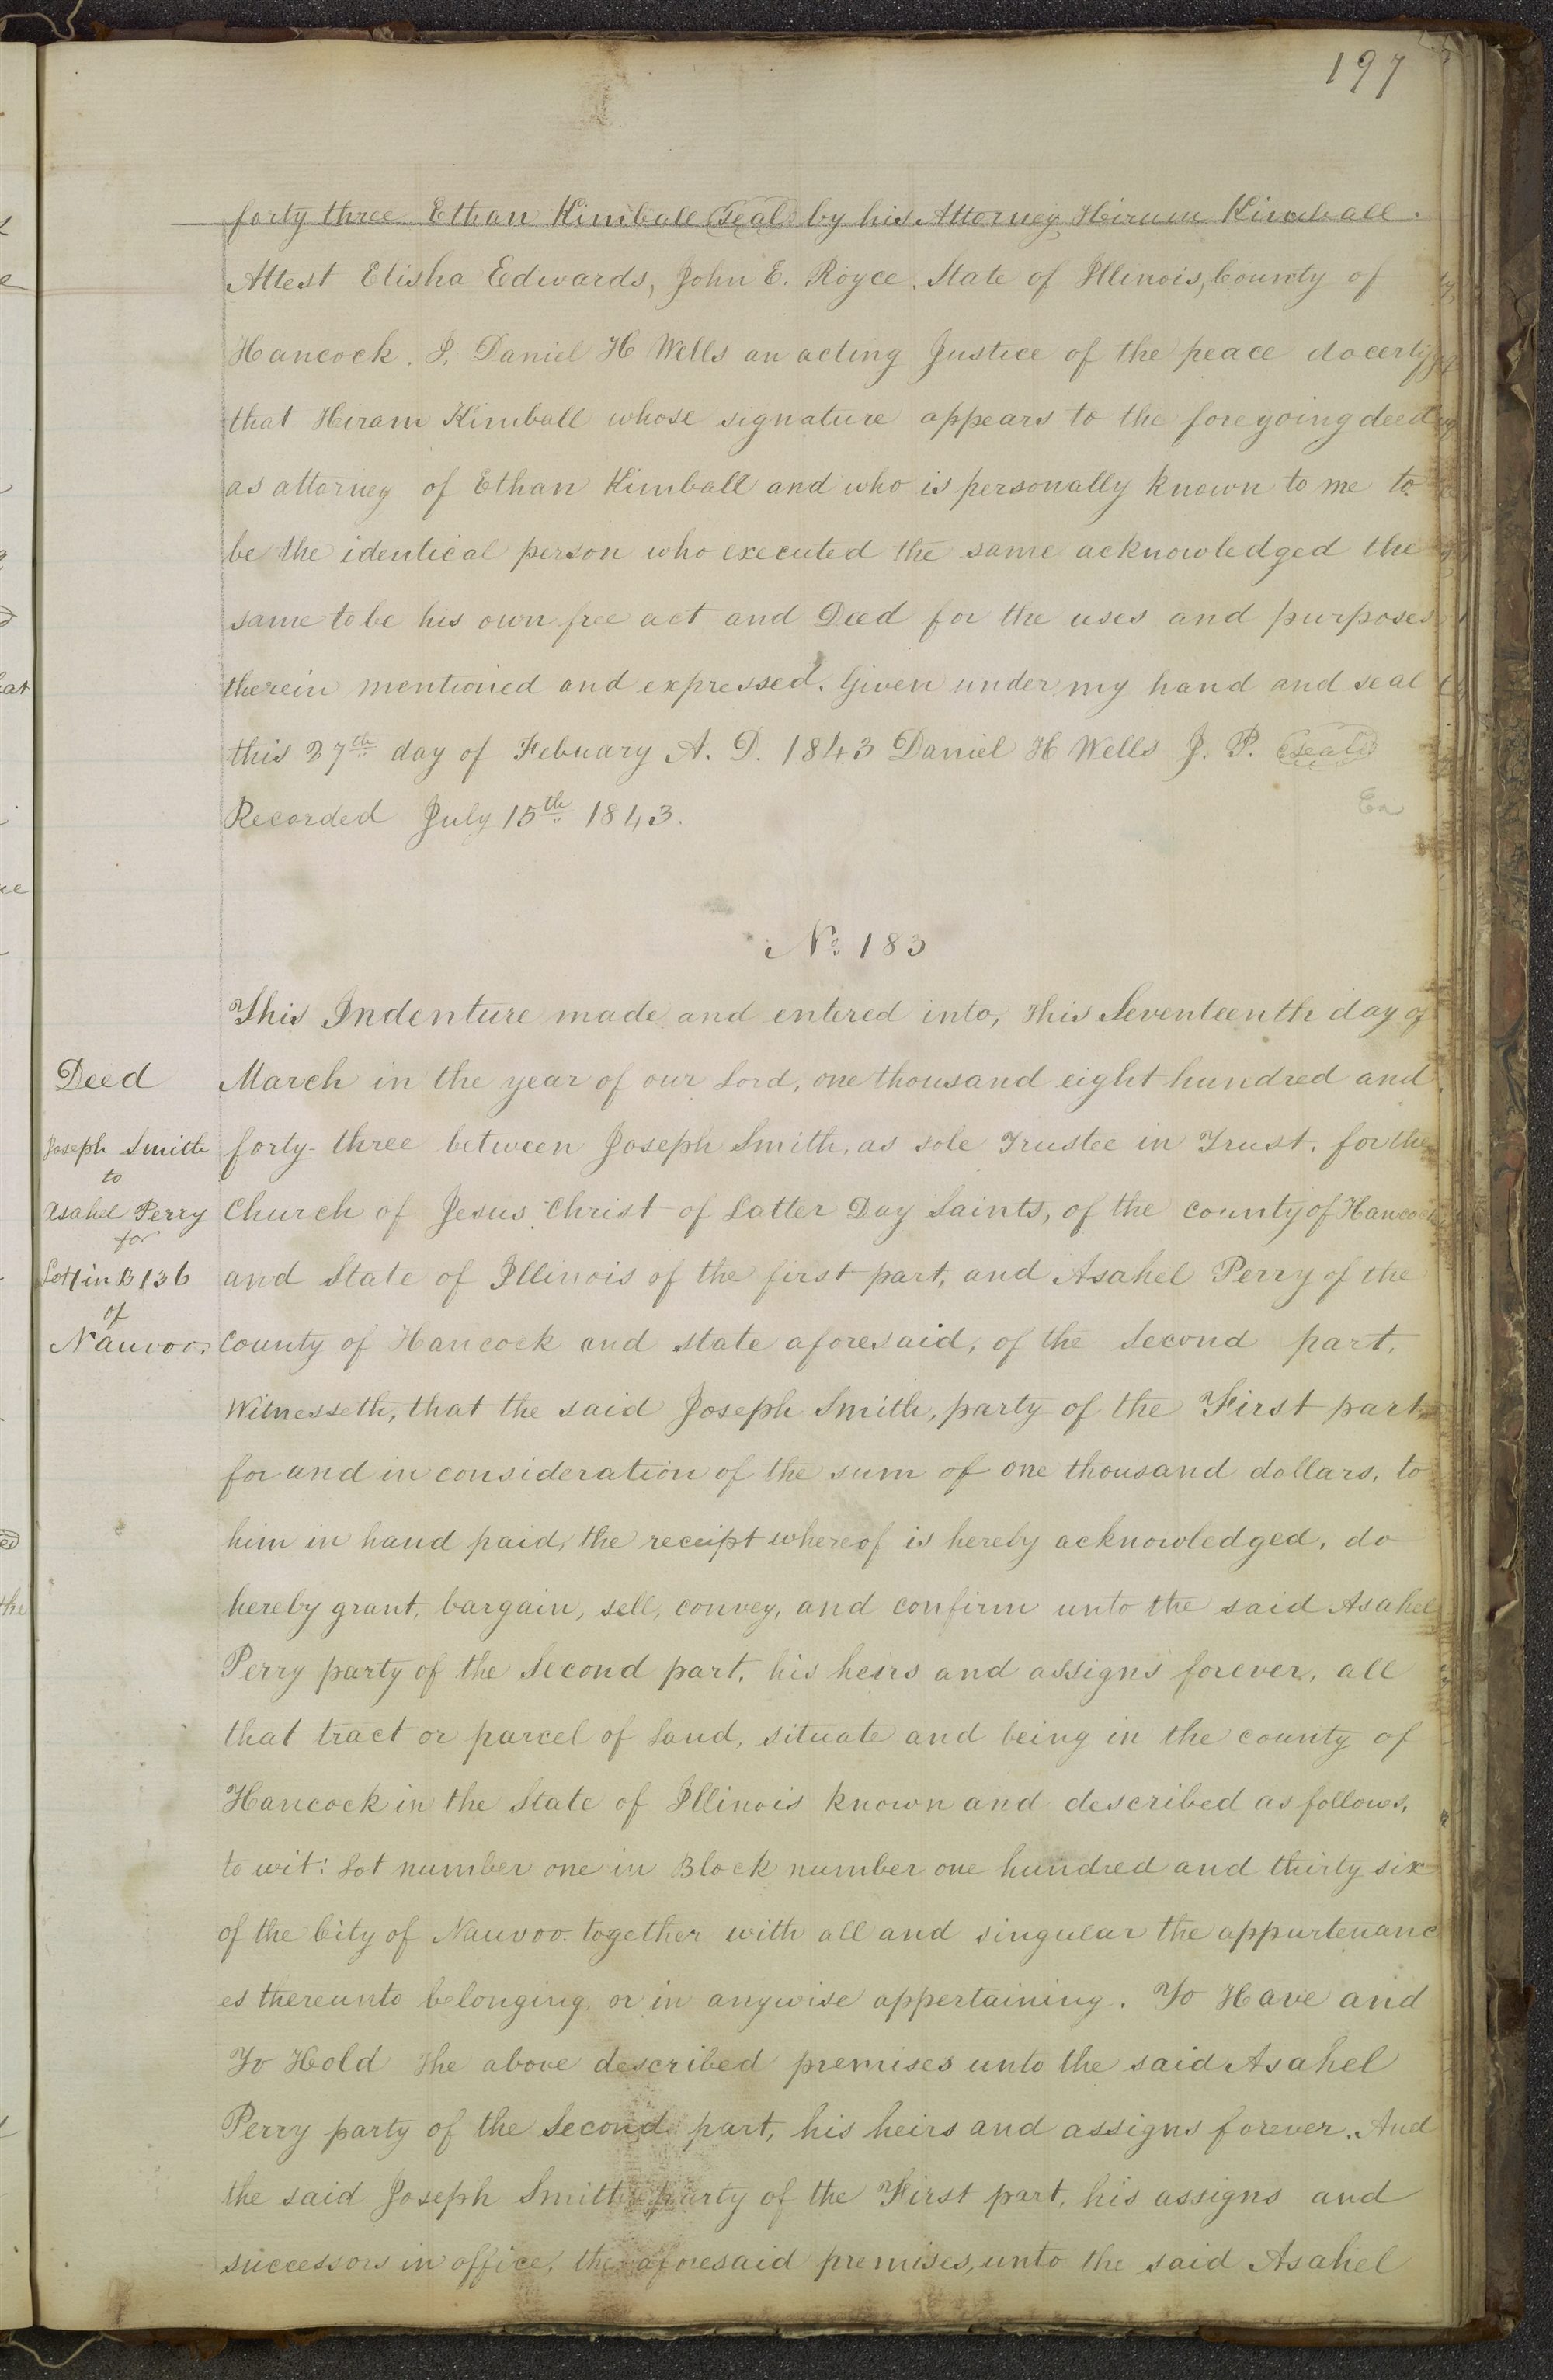 197
forty three Ethan Kimball (seal) by his Attorney Hiram Kimball.
Attest Elisha Edwards, John E. Royce. State of Illinois, County of
Hancock. I, Daniel H Wells an acting Justice of the peace do certify
that Hiram Kimball whose signature appears to the foregoing deed
as attorney of Ethan Kimball and who is personally known to me to
be the identical person who executed the same acknowledged the
same to be his own free act and Deed for the uses and purposes
therein mentioned and expressed. Given under my hand and seal
this 27th day of Febuary A. D. 1843 Daniel H Wells J. P. (seal)
Recorded July 15th 1843.
Ea
No. 183
This Indenture made and entered into, this Seventeenth day of
Deed
March in the year of our Lord, one thousand eight hundred and
Joseph Smith
forty-three between Joseph Smith, as sole Trustee in Trust, for the
to
Asahel Perry
Church of Jesus Christ of Latter Day Saints, of the county of Hancock
for
Lot 1 in B 136
and State of Illinois of the first part, and Asahel Perry of the
of
Nauvoo.
County of Hancock and state aforesaid, of the Second part,
Witnesseth, that the said Joseph Smith, party of the First part,
for and in consideration of the sum of one thousand dollars, to
him in hand paid, the receipt whereof is hereby acknowledged, do
hereby grant, bargain, sell, convey, and confirm unto the said Asahel
Perry party of the Second part, his heirs and assigns forever, all
that tract or parcel of Land, situate and being in the county of
Hancock in the State of Illinois known and described as follows,
to wit: Lot number one in Block number one hundred and thirty six
of the City of Nauvoo. together with all and singular the appurtenanc
es thereunto belonging, or in anywise appertaining. To Have and
To Hold the above described premises unto the said Asahel
Perry party of the Second part, his heirs and assigns forever. And
the said Joseph Smith party of the First part, his assigns and
successors in office, the aforesaid premises, unto the said Asahel